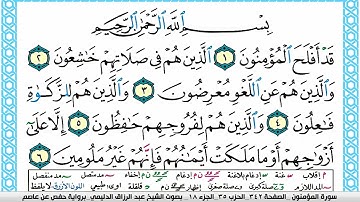 بِسْمِ ٱللَّهِ ٱلرَّحْمَٰنِ ٱلرَّحِيمِ
قَدْ أَفْلَحَ ٱلْمُؤْمِنُونَ ١ ٱلَّذِينَ هُمْ فِي صَلَاتِهِمْ خَٰشِعُونَ ٢
وَٱلَّذِينَ هُمْ عَنِ ٱللَّغْوِ مُعْرِضُونَ ٣ وَٱلَّذِينَ هُمْ لِلزَّكَوٰةِ
فَٰعِلُونَ ٤ وَٱلَّذِينَ هُمْ لِفُرُوجِهِمْ حَٰفِظُونَ ٥ إِلَّا عَلَىٰٓ
أَزْوَٰجِهِمْ أَوْ مَا مَلَكَتْ أَيْمَٰنُهُمْ فَإِنَّهُمْ غَيْرُ مَلُومِينَ ٦
سورة المؤمنون الصفحة ٣٤٢ الجزء ١٨ بصوت الشيخ عبد الرزاق الدليمي برواية حفص عن عاصم